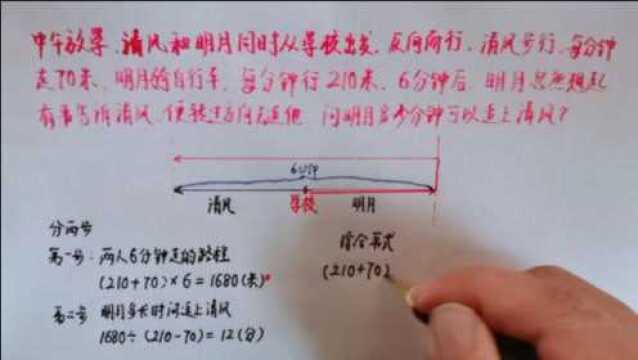 中午放学,清风和明月同时从学校出发,反向而行,清风步行,每分钟
走70米,明月骑自行车,每分钟行210米,6分钟后,明月忽然想起
有事告诉清风,便转过方向去追他 问明月多少分钟可以追上清风?
6分钟
清风 学校 明月
分两步
第一步:两人6分钟走的路程
(210+70)×6=1680(米)
第二步 明月多长时间追上清风
1680÷(210-70)=12(分)
综合算式
(210+70)